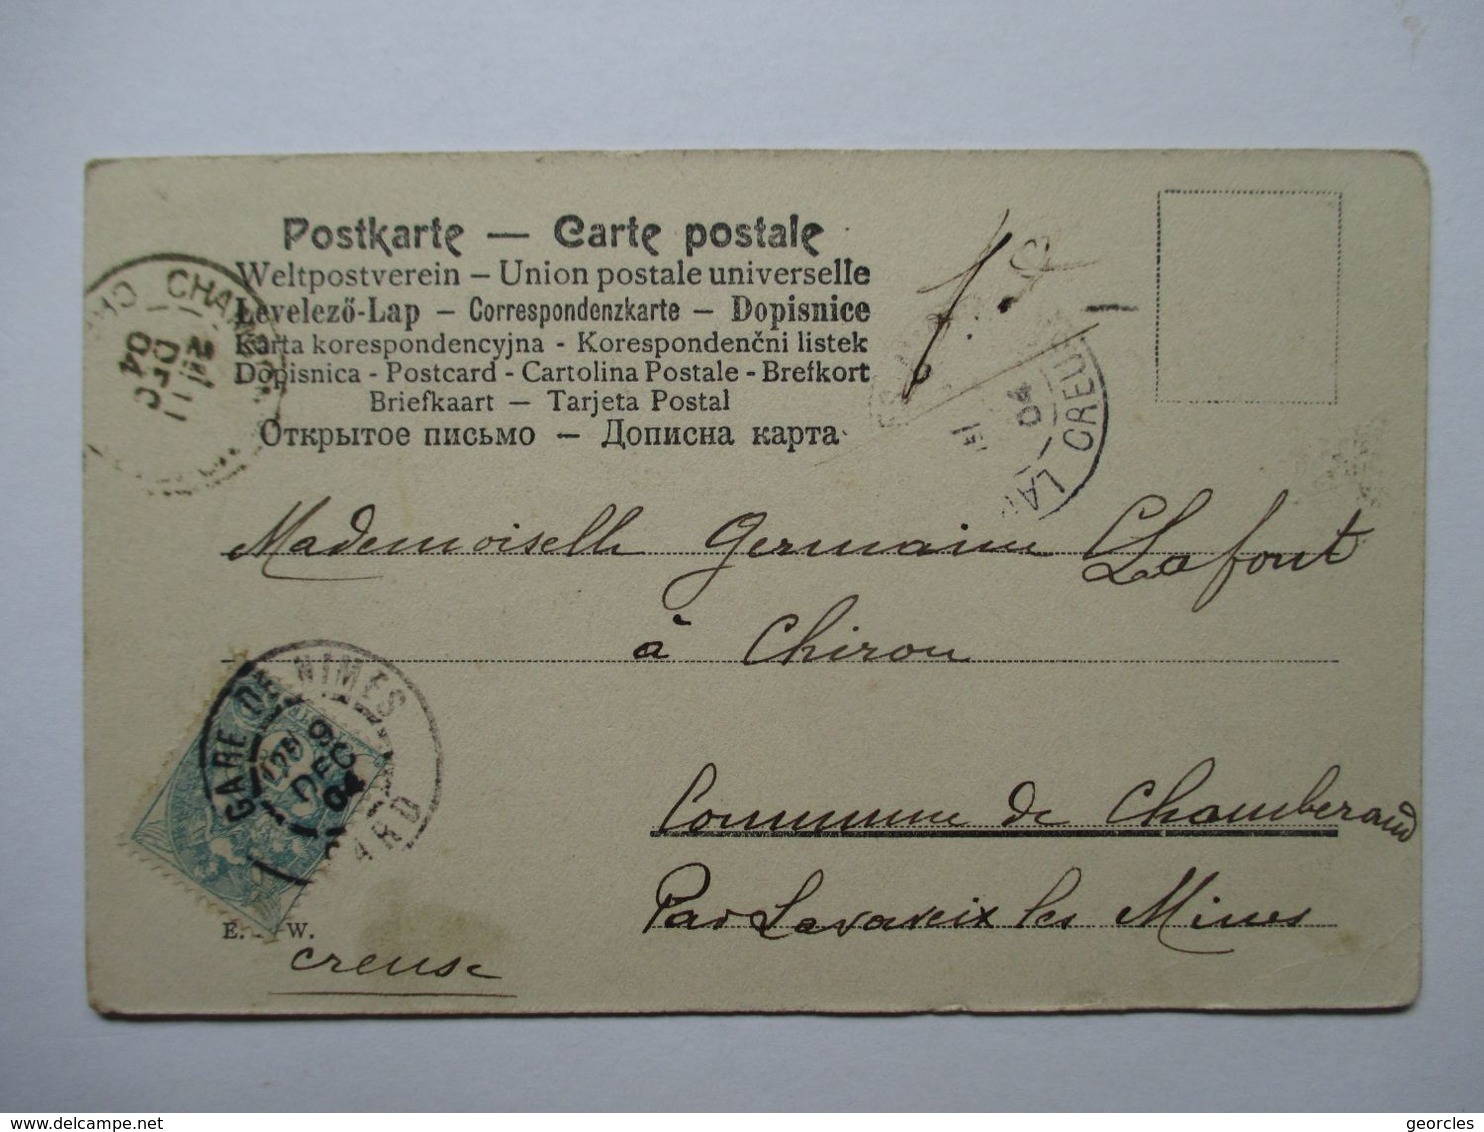 Postkarte — Carte postale
Weltpostverein – Union postale universelle
Levelező-Lap – Correspondenzkarte – Dopisnice
Karta korespondencyjna - Korespondenční listek
Dopisnica - Postcard - Cartolina Postale - Brefkort
Briefkaart — Tarjeta Postal
Открытое письмо – Дописна карта
CHA
11
DEC
04
CREU
LA
04
Mademoiselle Germaine Lafont
à Chirou
GARE DE NIMES
9
DEC
04
GARD
Commune de Chamberaud
Par Lavaveix les Mines
E. W.
Creuse
georcles